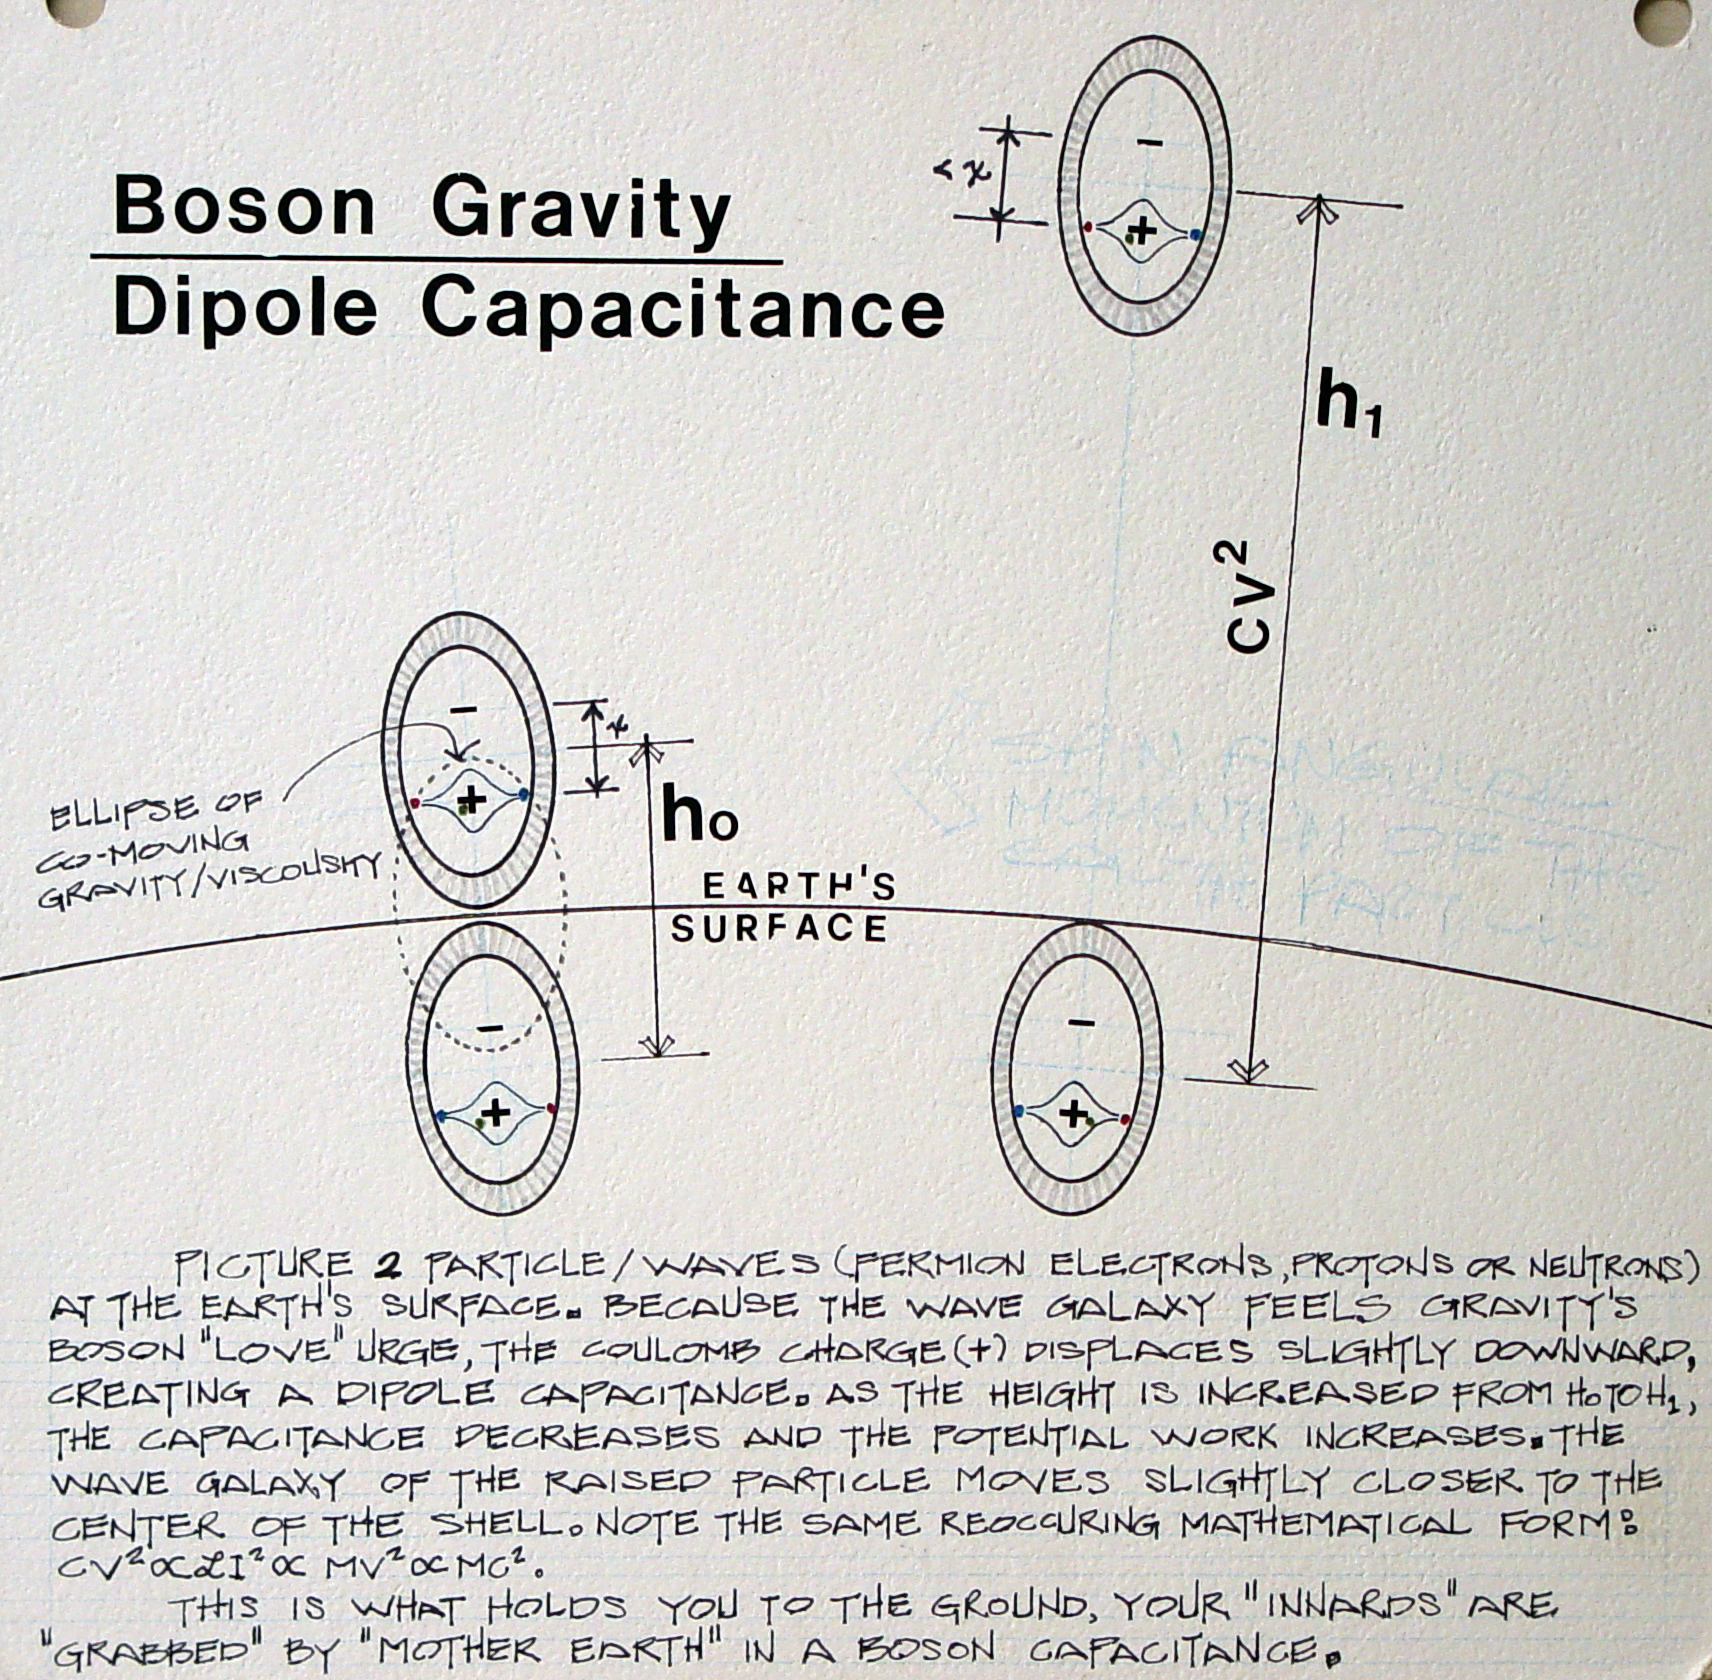 Boson Gravity
Dipole Capacitance
< x
−
+
h1
CV²
−
x
+
h0
ELLIPSE OF
CO-MOVING
GRAVITY/VISCOUSITY
EARTH'S
SURFACE
−
+
−
+
PICTURE 2 PARTICLE/WAVES (FERMION ELECTRONS, PROTONS OR NEUTRONS)
AT THE EARTH'S SURFACE. BECAUSE THE WAVE GALAXY FEELS GRAVITY'S
BOSON "LOVE" URGE, THE COULOMB CHARGE (+) DISPLACES SLIGHTLY DOWNWARD,
CREATING A DIPOLE CAPACITANCE. AS THE HEIGHT IS INCREASED FROM H0 TO H1,
THE CAPACITANCE DECREASES AND THE POTENTIAL WORK INCREASES. THE
WAVE GALAXY OF THE RAISED PARTICLE MOVES SLIGHTLY CLOSER TO THE
CENTER OF THE SHELL. NOTE THE SAME REOCCURING MATHEMATICAL FORM:
CV² ∝ LI² ∝ MV² ∝ MC².
THIS IS WHAT HOLDS YOU TO THE GROUND, YOUR "INNARDS" ARE
"GRABBED" BY "MOTHER EARTH" IN A BOSON CAPACITANCE.